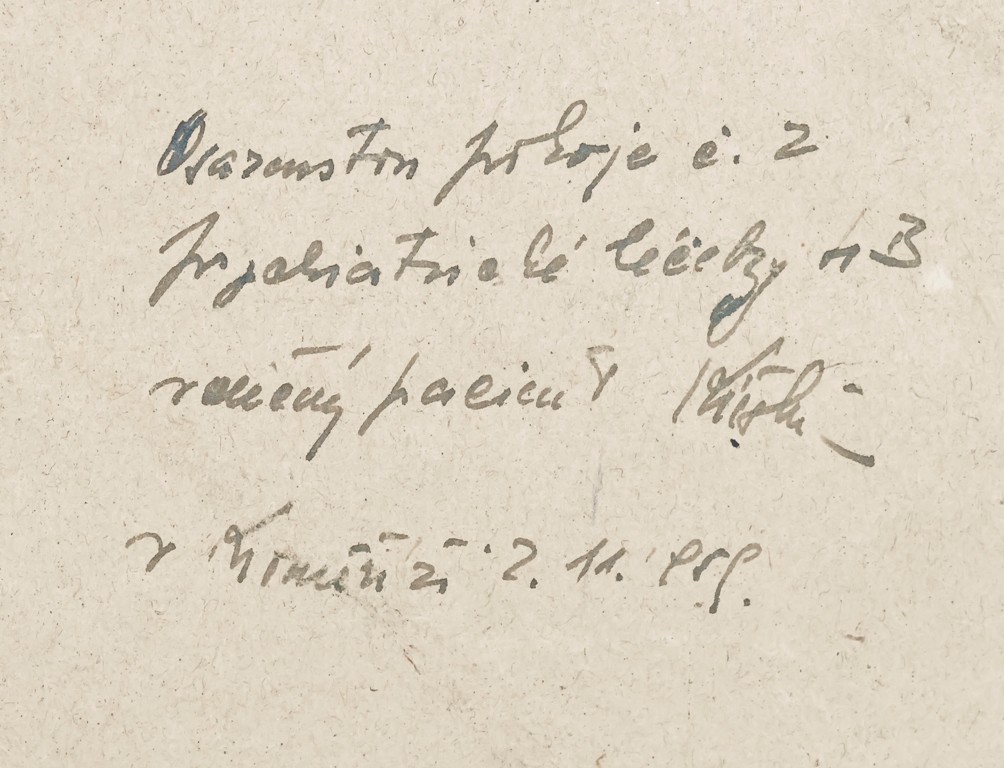 Osazenstvu pokoje č. 2
psychiatrické léčebny
vděčný pacient
v Kroměříži 2. 11. 959.